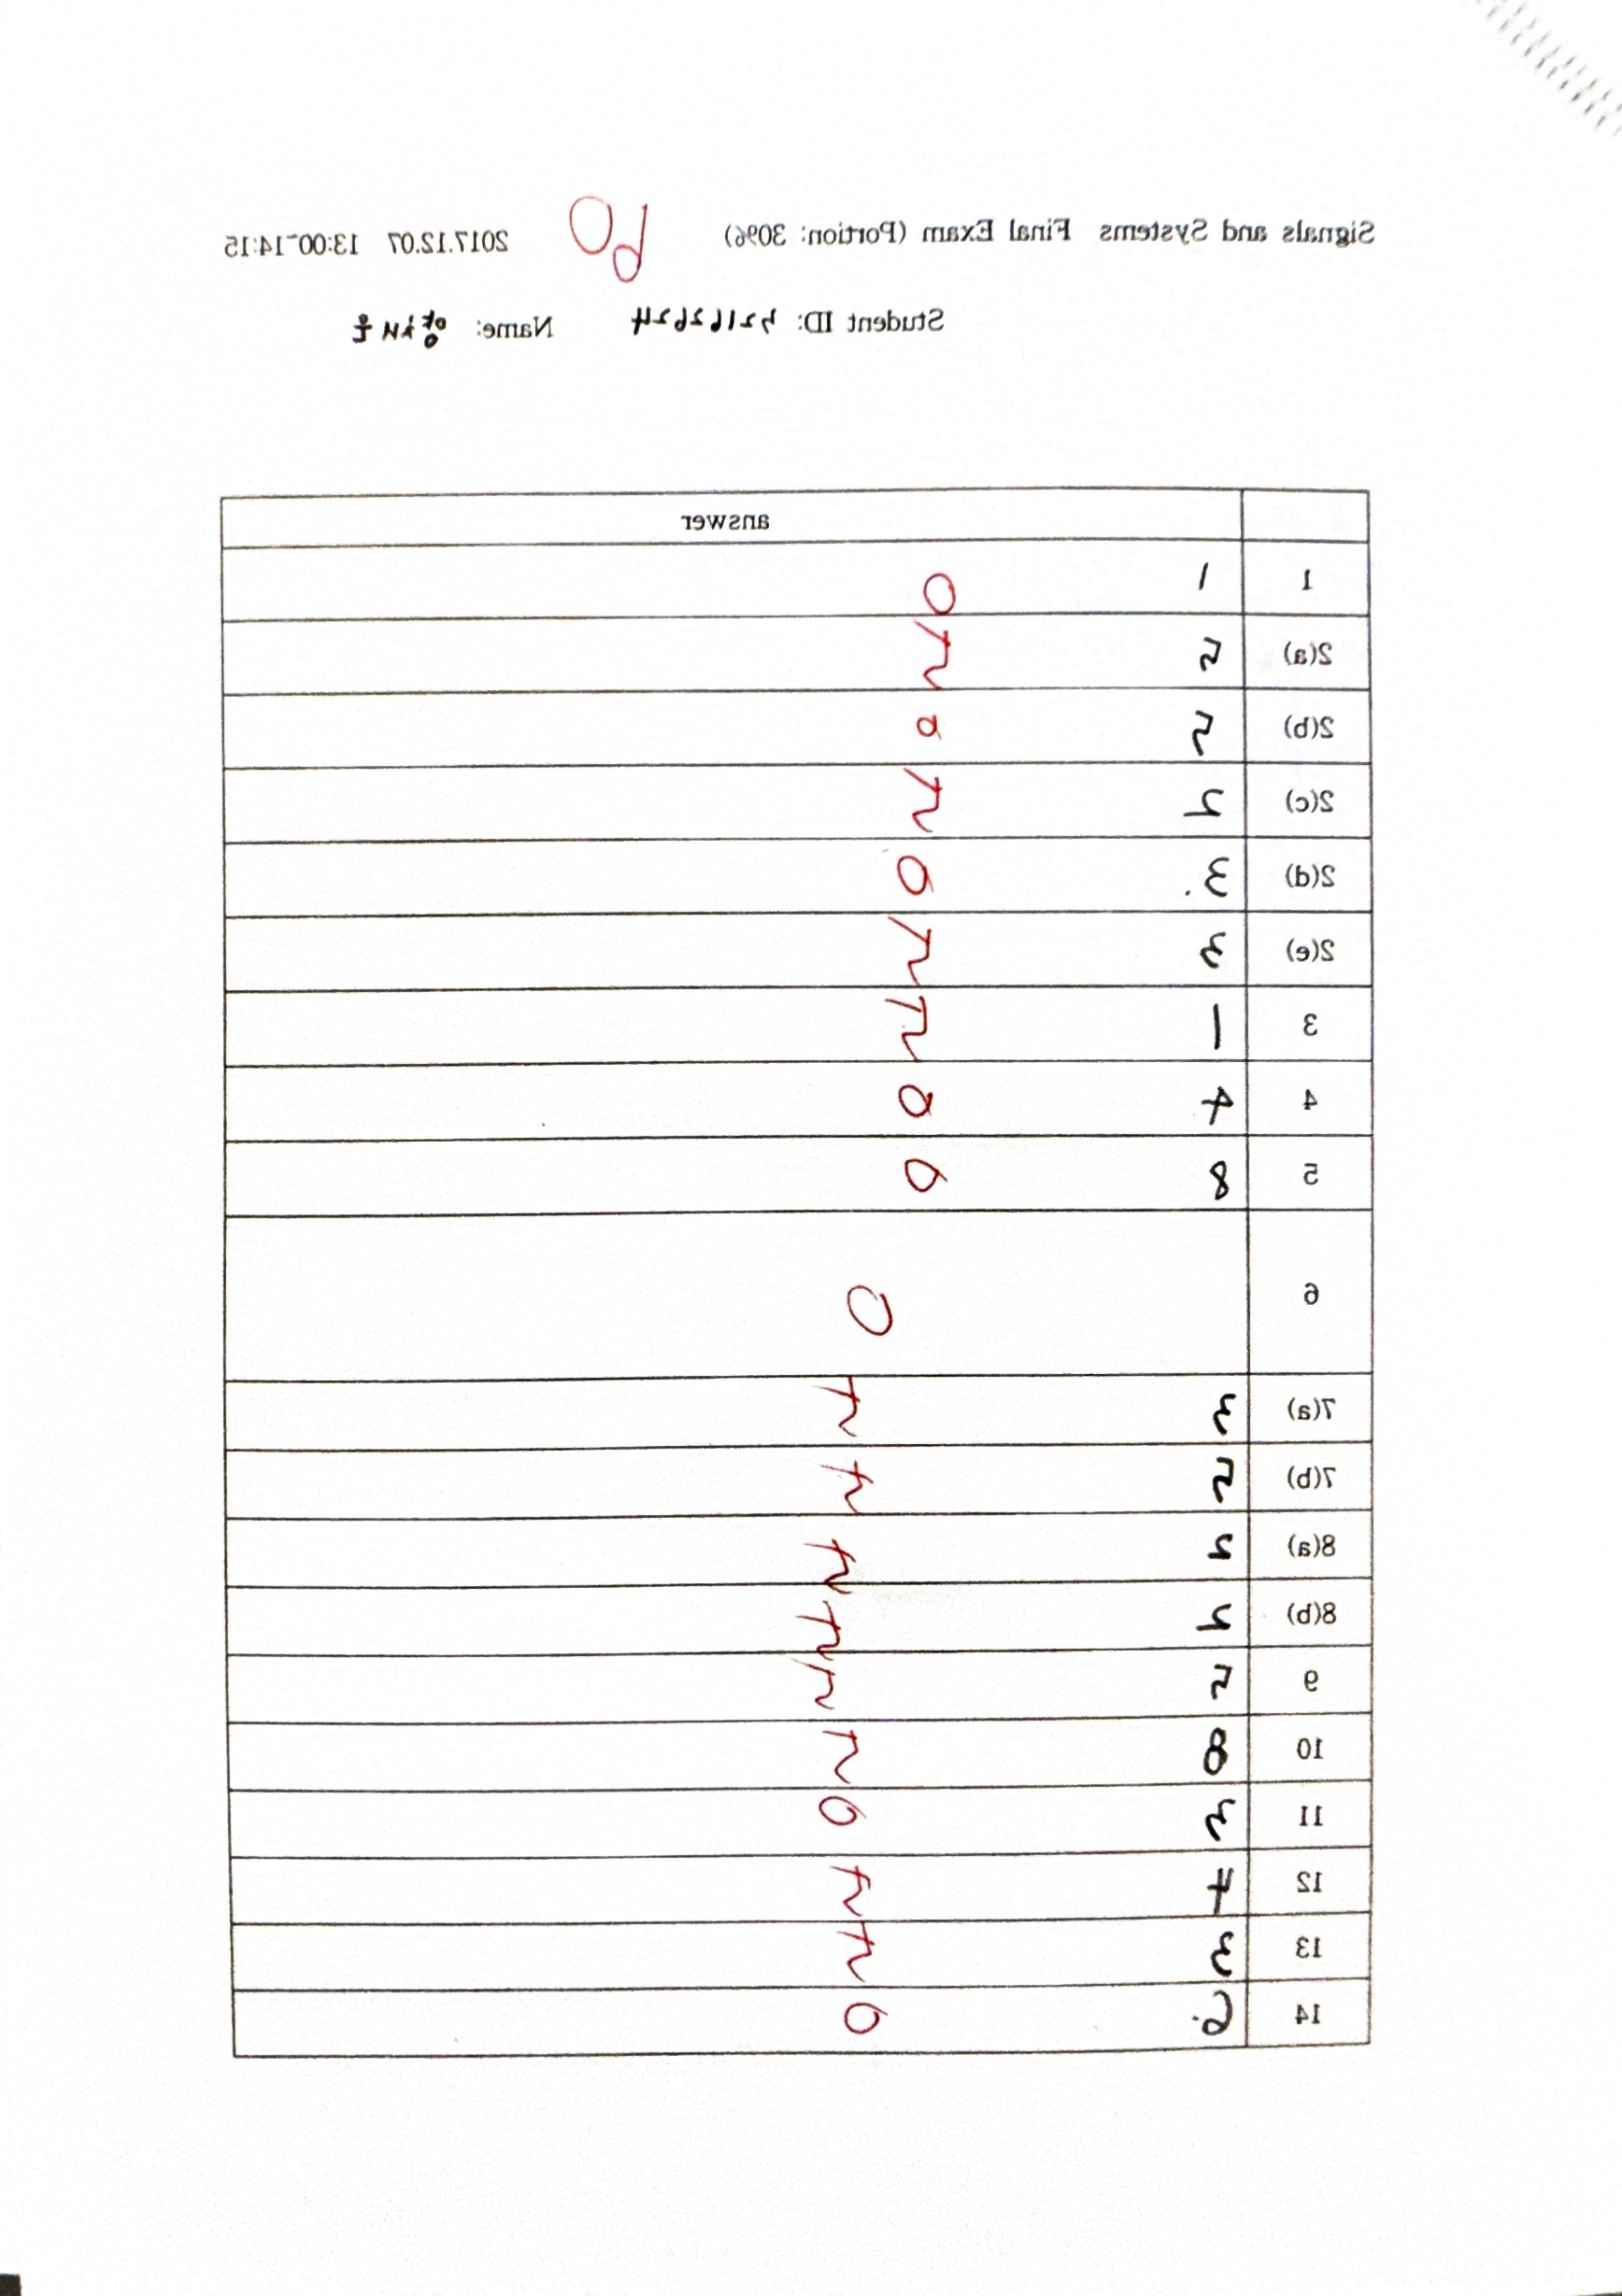 Signals and Systems Final Exam (Portion: 30%) 60 2017.12.07 13:00~14:15
Student ID: 32162624 Name:
answer
1 1 0
2(a) 5 5
2(b) 5 0
2(c) 2 5
2(d) 3. 0
2(e) 3 5
3 1 5
4 4 0
5 8 0
6 0
7(a) 3 5
7(b) 5 5
8(a) 2 5
8(b) 2 5
9 5 5
10 8 5
11 3 0
12 4 5
13 3 5
14 6. 0